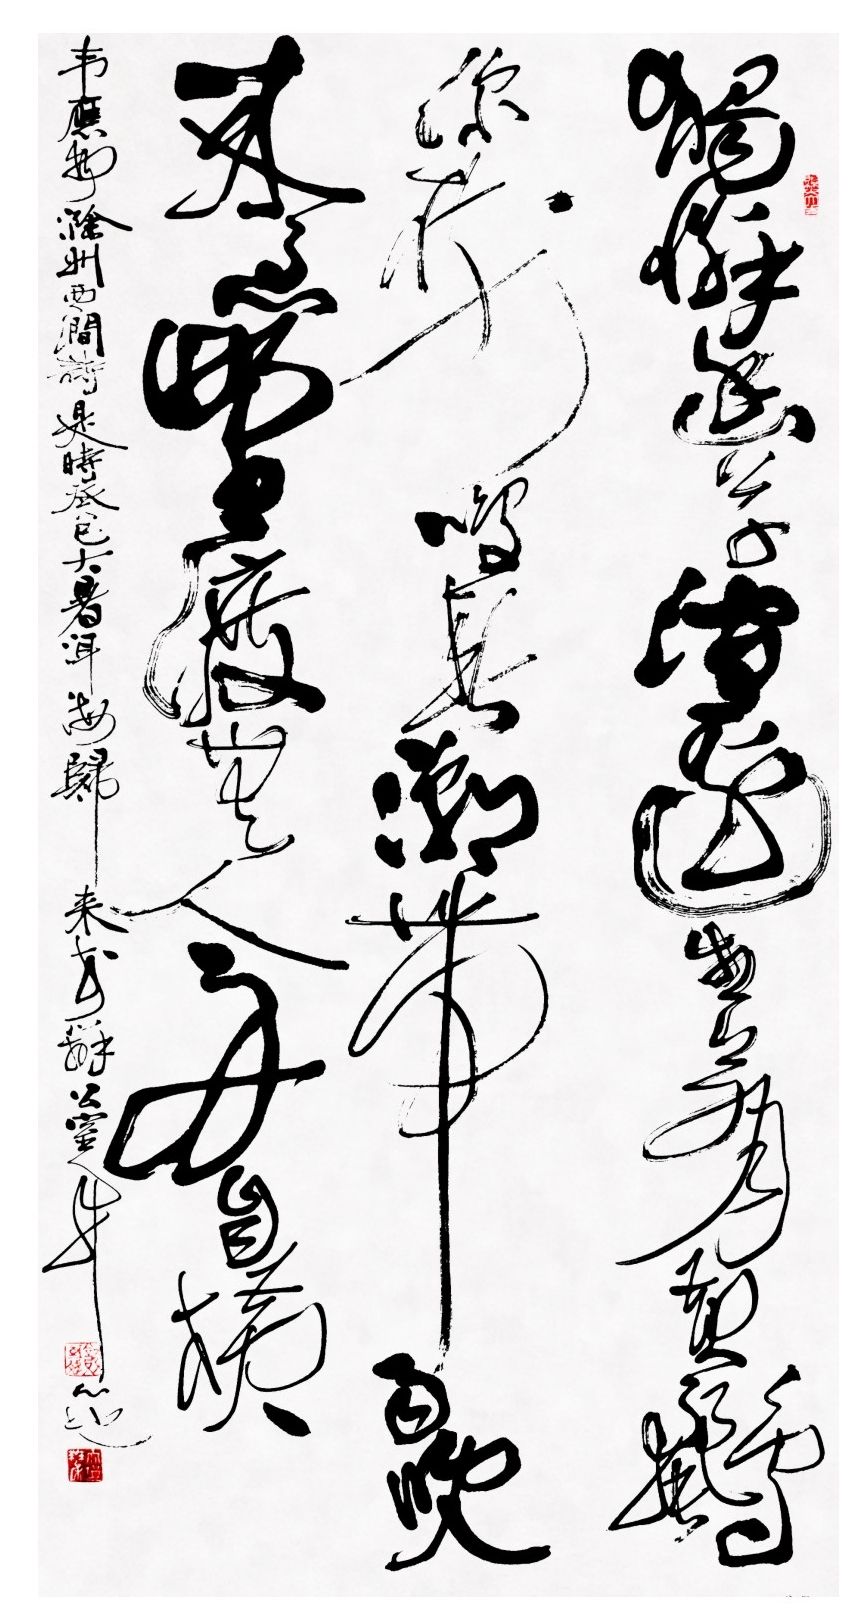 獨憐幽草澗邊生上有黃鸝
深樹鳴春潮帶雨晚
来急野渡無人舟自橫
韦應物滁州西澗詩是時癸巳大暑洱海歸来於辦公室